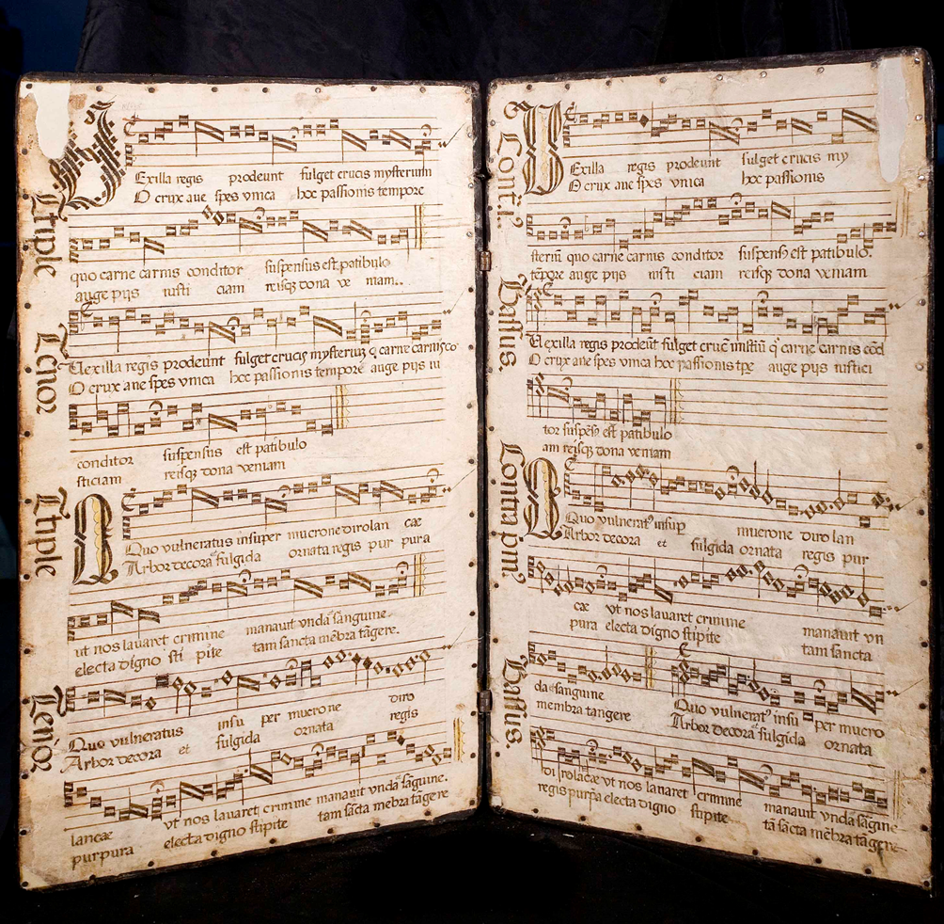 Ttiple
Vexilla regis prodeunt fulget crucis mysterium
O crux aue spes vnica hoc passionis tempore
quo carne carnis conditor suspensus est patibulo
auge pijs iusti ciam reisq₃ dona ve niam..
Tenor
Uexilla regis prodeunt fulget crucis mysteriuȝ q̨ carne carnis co
O crux aue spes vnica hoc passionis tempore auge pijs iu
conditor suspensus est patibulo
sticiam reisq₃ dona veniam
Ttiple
Quo vulneratus insuper mucrone diro lan cae
Arbor decora fulgida ornata regis pur pura
ut nos lauaret crimine manauit vnda sanguine
electa digno sti pite tam sancta mēbra tāgere.
Tenor
Quo vulneratus insu per mucrone diro
Arbor decora et fulgida ornata regis
lanceae vt nos lauaret crimine manauit vnda sāguine.
purpura electa digno stipite tam sācta mēbra tāgere
Contr̄
Vexilla regis prodeunt fulget crucis my
O crux aue spes vnica hoc passionis
steriū quo carne carnis conditor suspensꝰ est patibulo.
tēpore auge pijs iusti ciam reisq₃ dona veniam
Bassus.
Uexilla regis prodeūt fulget crucꝭ misteriū q̨ carne carnis cōd
O crux aue spes vnica hoc passionis tp̄e auge pijs iustici
tor suspēsꝰ est patibulo
am reisq₃ dona veniam
Contra
Quo vulneratꝰ insup̱ mucrone diro lan
Arbor decora et fulgida ornata regis pur
cae vt nos lauaret crimine manauit vn
pura electa digno stipite tam sancta
da sanguine
membra tangere
Bassus.
Quo vulneratꝰ insu per mucro
Arbor decora fulgida ornata
diro lācae vt nos lauaret crimine manauit vnda sāguine
regis purpa electa digno stipite tā sācta mēbra tāgere